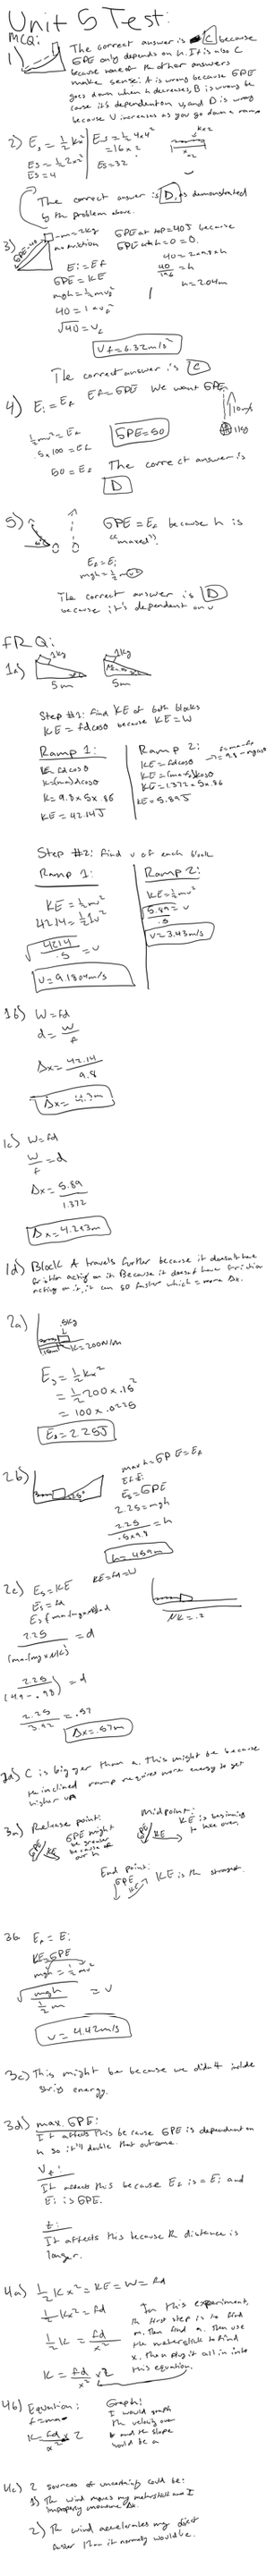 Unit 5 Test:
MCQ:
1)
The correct answer is C because
GPE only depends on h. It is also C
because none of the other answers
make sense: A is wrong because GPE
goes down when h decreases, B is wrong be
cause it's dependent on v, and D is wrong
because v increases as you go down a ramp
2) Es = ½kx²
Es = ½2x²
Es = 4
Es = ½4x4²
= 16x2
Es = 32
The correct answer is D, as demonstrated
by the problem above.
3)
m=2kg
no friction
GPE=40J
GPE at top = 40J because
GPE at h=0 = 0.
Ei = Ef
GPE = KE
mgh = ½mv²
40 = 1×v²
√40 = v
40 = 2×9.8×h
40/19.6 = h
h = 2.04m
Vf = 6.32m/s
The correct answer is C
4) Ei = Ef Ef = GPE We want GPE
½mv² = Ef
.5×100 = Ef
50 = Ef
GPE = 50
10m/s
1kg
The correct answer is
D
5)
GPE = Ef because h is
"maxed".
Ef = Ei
mgh = ½mv²
The correct answer is D
because it's dependent on v
FRQ:
1a)
1kg
5m
1kg
5m
Step #1: Find KE of both blocks
KE = fdcosθ because KE = W
Ramp 1:
K = fdcosθ
K = (ma)dcosθ
K = 9.8×5×.86
KE = 42.14J
Ramp 2:
KE = fdcosθ
KE = 1.372×5×.86
KE = 5.89J
Step #2: Find v of each block
Ramp 1:
KE = ½mv²
42.14 = ½1v²
√42.14/.5 = v
v = 9.1804m/s
Ramp 2:
KE = ½mv²
√5.89/.5 = v
v = 3.43m/s
1b) W = fd
d = W/f
Δx = 42.14/9.8
Δx = 4.3m
1c) W = fd
W/f = d
Δx = 5.89/1.372
Δx = 4.293m
1d) Block A travels further because it doesn't have
friction acting on it. Because it doesn't have friction
acting on it, it can go faster which = more Δx.
2a)
.5kg
K=200N/m
Es = ½kx²
= ½200×.15²
= 100×.0225
Es = 2.25J
2b)
max h = GPE = Ef
Ef = Ei
Es = GPE
2.25 = mgh
2.25/.5×9.8 = h
h = .459m
2c) Es = KE KE = fd = W
Es = fd
2.25/(ma-(mg×μk)) = d
2.25/(4.9-.98) = d
2.25/3.92 = .57
Δx = .57m
μk = .2
2d) C is bigger than a. This might be because
the inclined ramp requires more energy to get
higher up
3a) Release point:
GPE might
be greater
because of
our h
GPE
KE
Midpoint:
KE is beginning
to take over.
KE
End point:
GPE
KE
KE is the strongest.
3b Ef = Ei
KE = GPE
mgh = ½mv²
√mgh/½m = v
v = 4.42m/s
3c) This might be because we didn't include
string energy.
3d) max GPE:
It affects this because GPE is dependant on
h so it'll double that outcome.
Vf:
It affects this because Ef is = Ei and
Ei is GPE.
t:
It affects this because the distance is
longer.
4a) ½kx² = KE = W = fd
½kx² = fd
½k = fd/x²
k = fd/x² × 2
In this experiment,
the first step is to find
m, then find a, then use
the meterstick to find
x, then plug it all in into
this equation.
4b) Equation:
f = ma
k = fd/x² × 2
Graph:
I would graph
the velocity over
t and the slope
would be a
4c) 2 sources of uncertainty could be:
1) The wind moves my meterstick and I
improperly measure Δx.
2) The wind accelerates my object
faster than it normally would be.